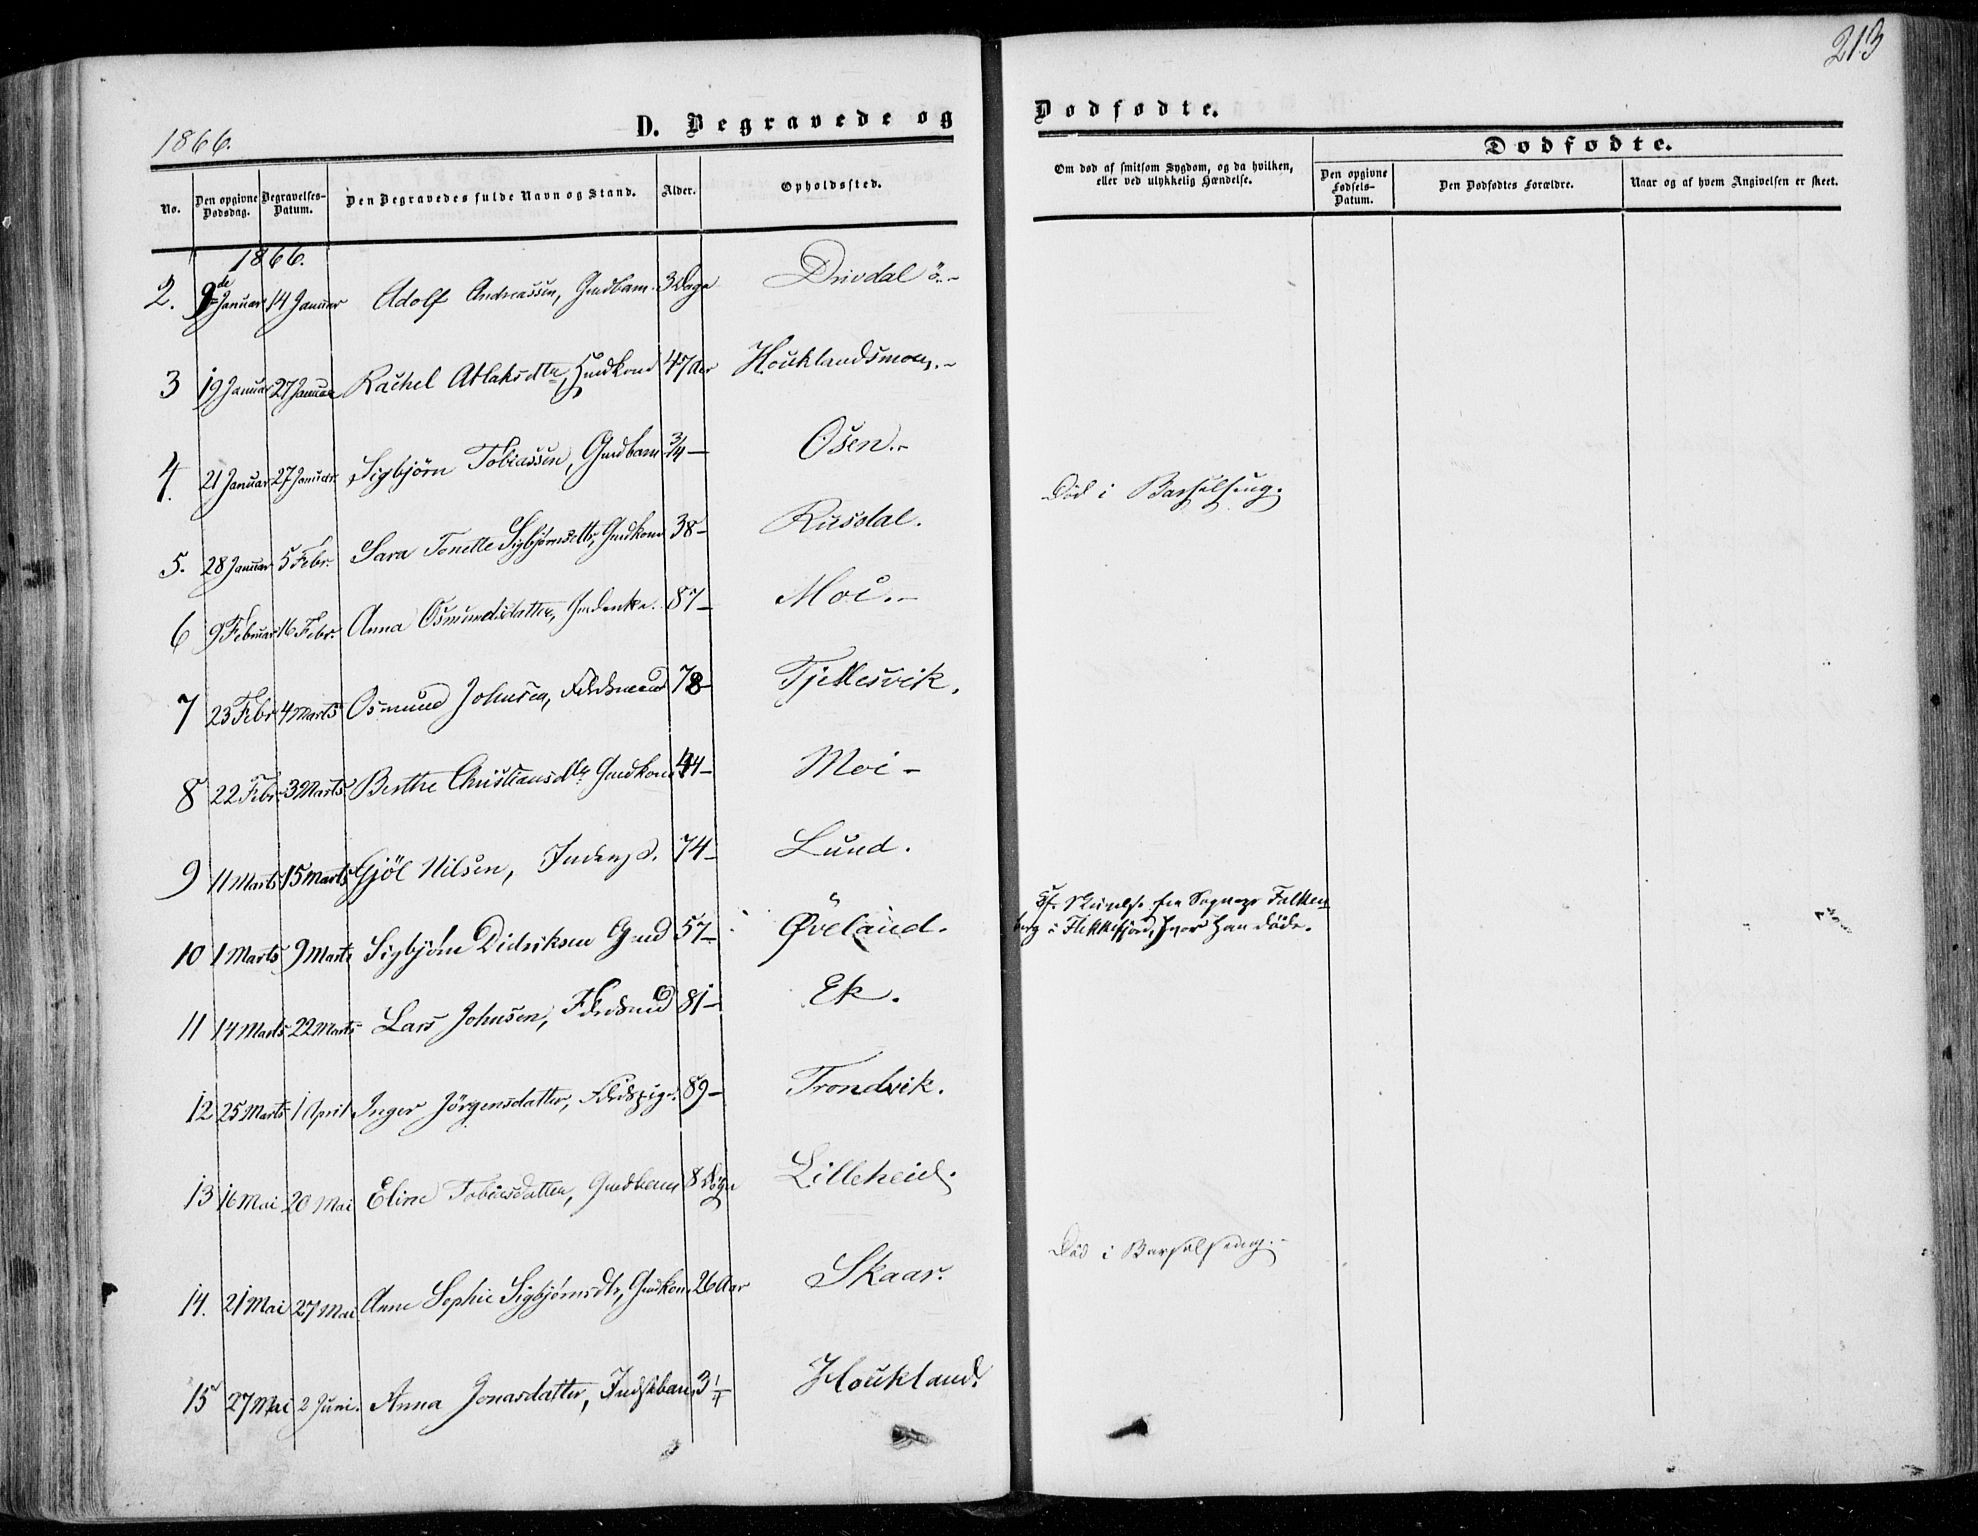 213
D. Begravede og Dødfødte.
1866.
Dødfødte.
No.
Den opgivne Dødsdag.
Begravelses-Datum.
Den Begravedes fulde Navn og Stand.
Alder.
Opholdssted.
Om død af smitsom Sygdom, og da hvilken, eller ved ulykkelig Hændelse.
Den opgivne Fødsels-Datum.
Den Dødfødtes Forældre.
Naar og af hvem Angivelsen er skeet.
1866.
2. 9de Januar 14 Januar Adolf Andreassen, Gmdbarn 3 Dage Drivdal ö.-
3 19 Januar 27 Januar Rachel Atlaksdtr, Gmdkone 47 Aar Houklandsmoen.-
4. 21 Januar 27 Januar Sigbjörn Tobiassen, Gmdbarn 3/4 — Osen.-
5. 28 Januar 5 Febr. Sara Tonette Sigbjörnsdttr, Gmdkone 38 – Rusdal. Död i Barselseng.
6 9 Februar 16 Febr. Anna Osmundsdatter, Gmdenke. 87 – Moi.-
7 23 Febr 4 Marts Osmund Johnsen, Fdrdsmand 78 – Tjellesvik.
8 22 Febr. 3 Marts Berthe Christiansdtr Gmdkone 44 – Moi –
9 11 Marts 15 Marts Gjöl Nilsen, 74 – Lund.
10 1 Marts 9 Marts Sigbjörn Didriksen Gmd 57 – Øveland. fra Falken-
berg i Flekkefjord, hvor han döde.
11 14 Marts 22 Marts Lars Johnsen, Fdrdsmd 81 – Ek.
12 25 Marts 1 April Inger Jörgensdatter, Fdrdspige 89 – Trondvik.
13 16 Mai 20 Mai Eline Tobiasdatter, Gmdbarn 8 Døgn Lilleheid.
14. 21 Mai 27 Mai Anne Sophie Sigbjörnsdtr, Gmdkone 26 Aar Skaar. Död i Barselseng.-
15 27 Mai 2 Juni. Anna Jonasdatter, Indstbarn 3 1/4 Houkland.